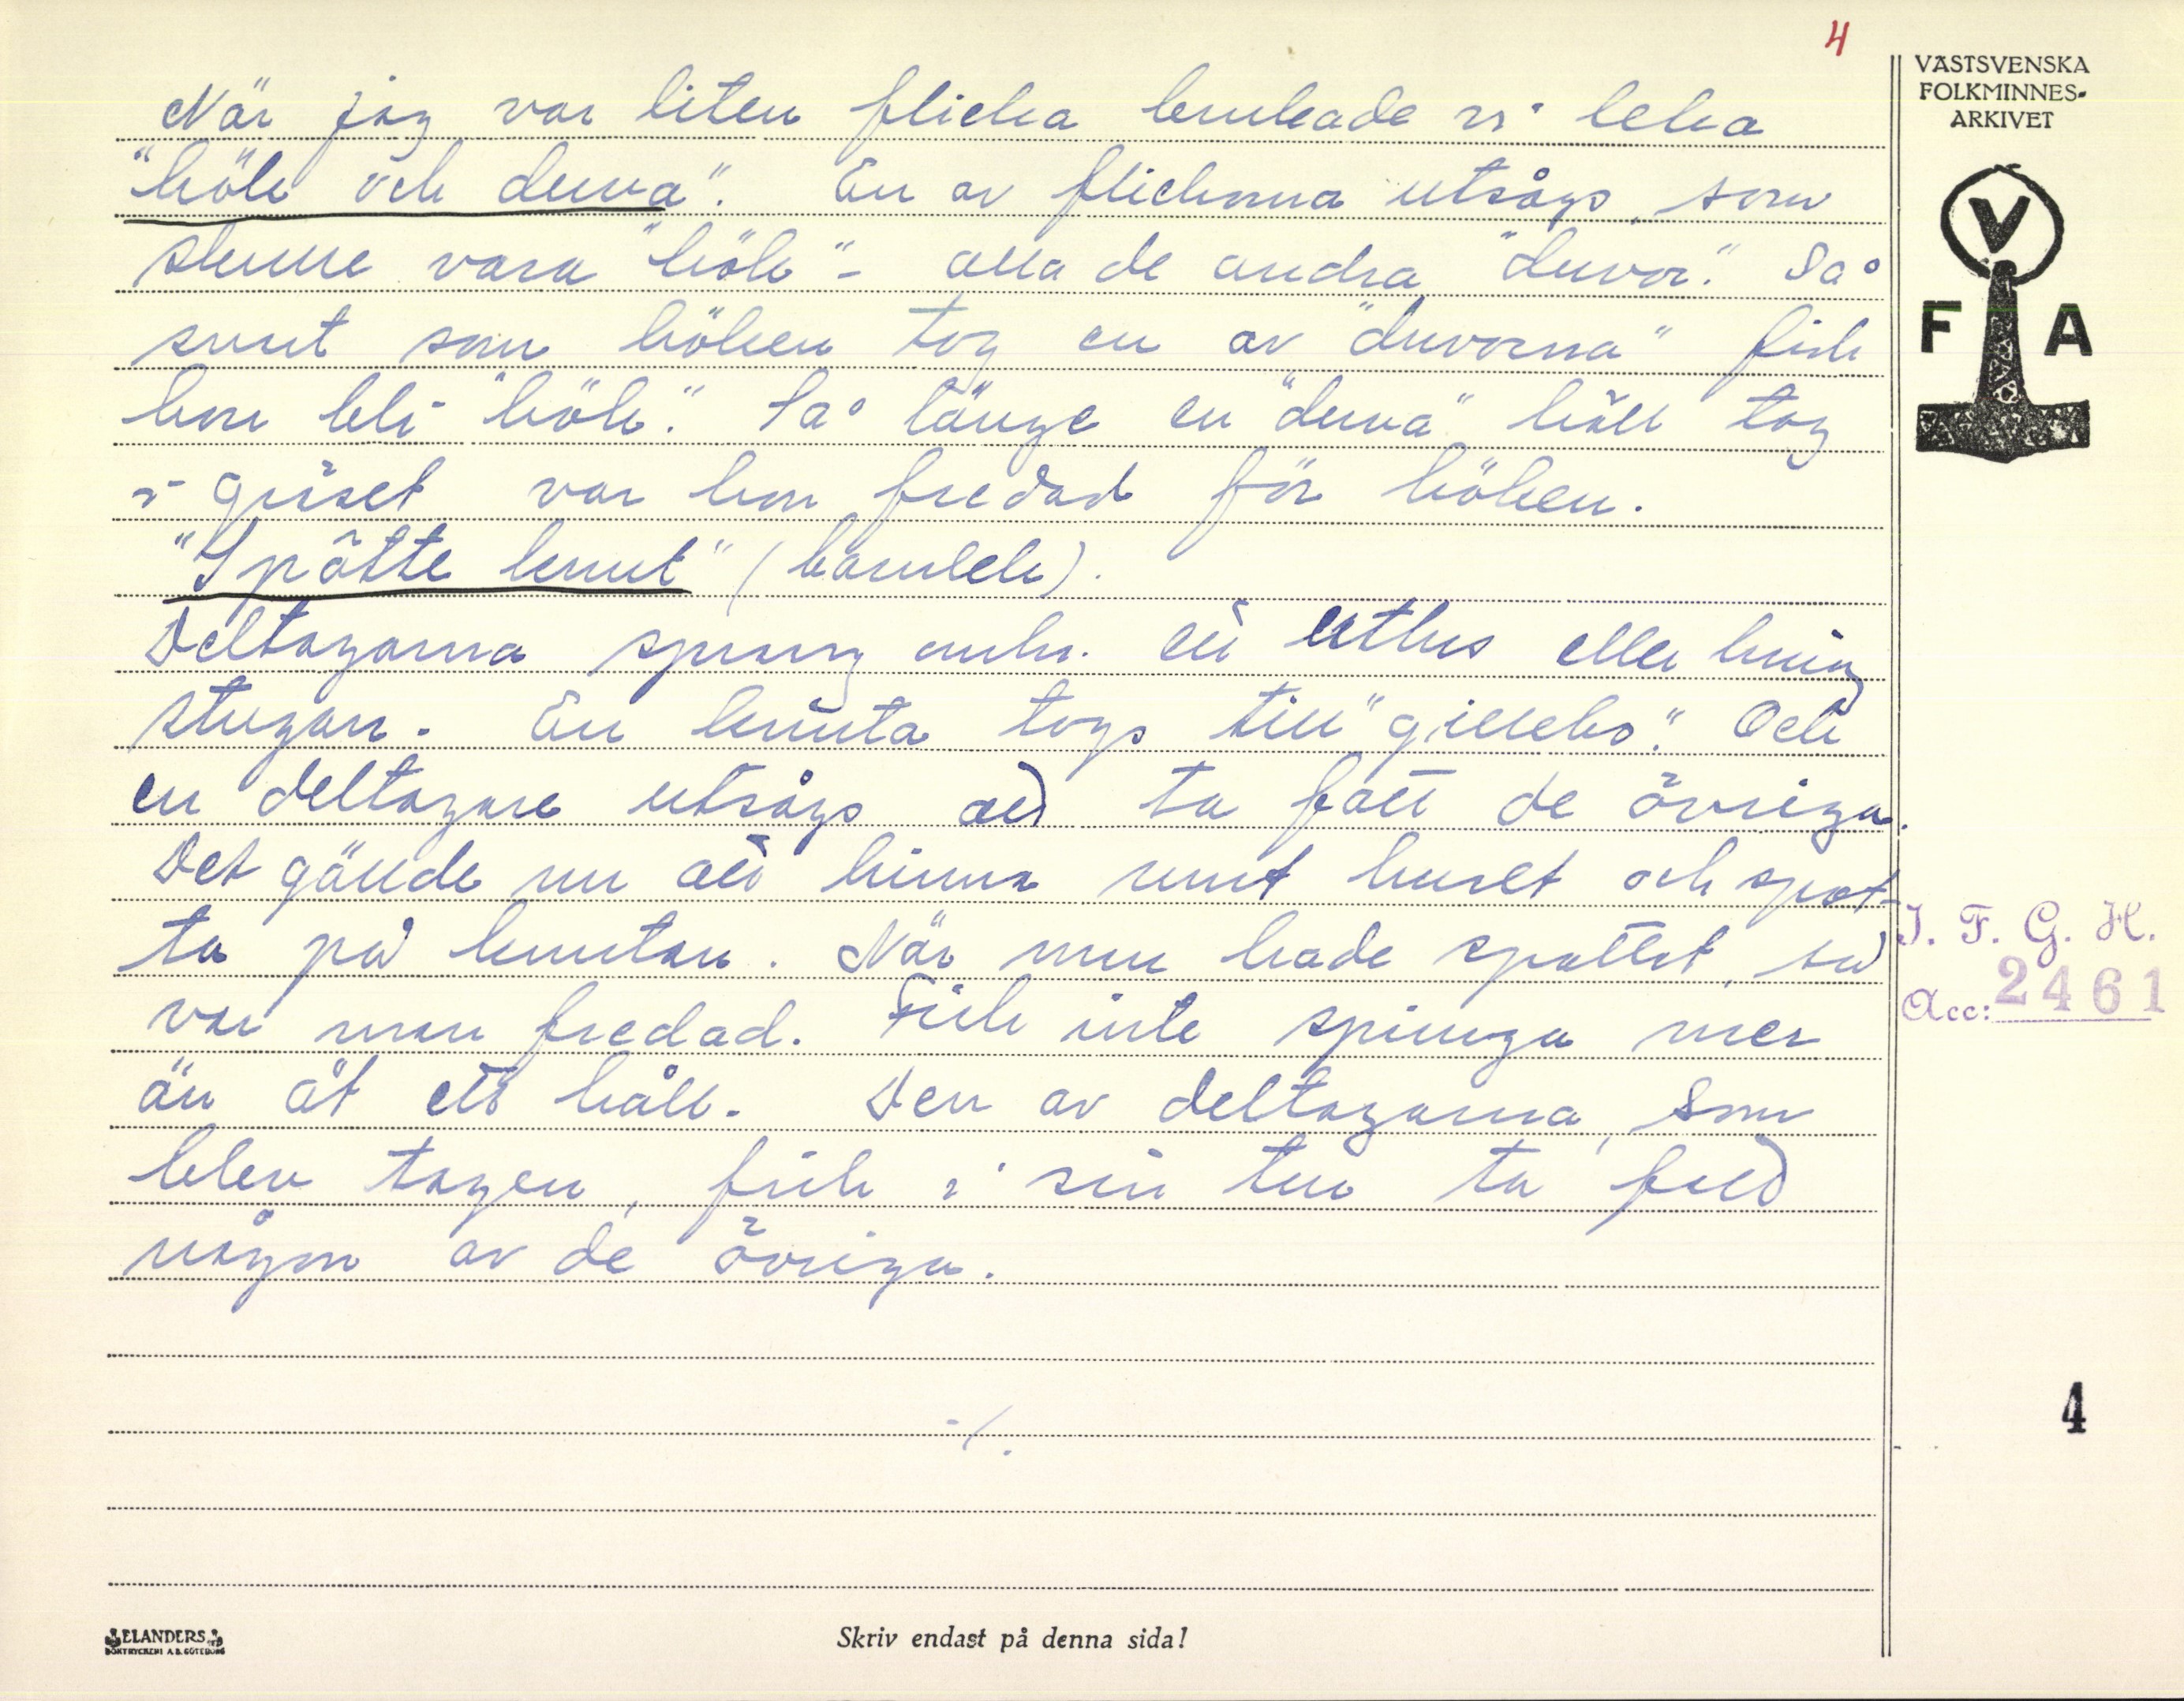 4
VÄSTSVENSKA
FOLKMINNES-
ARKIVET
V
F A
När jag var liten flicka brukade vi leka
"hök och duva". En av flickorna utsågs, som
skulle vara "hök" - alla de andra "duvor". Så
snart som höken tog en av "duvorna" fick
hon bli "hök". Så länge en "duva" höll tag
i gräset var hon fredad för höken.
"Spôtte knut" (barnlek).
Deltagarna sprang omkr. ett uthus eller kring
stugan. En knuta togs till "gilleks". Och
en deltagare utsågs att ta fatt de övriga.
Det gällde nu att hinna runt huset och spot-
ta på knutan. När man hade spottat, så
var man fredad. Fick inte springa mer
än åt ett håll. Den av deltagarna, som
blev tagen, fick i sin tur ta fatt
någon av de övriga.
-/.
I. F. G. H.
Acc: 2461
4
ELANDERS
BOKTRYCKERI A.B. GÖTEBORG
Skriv endast på denna sida!